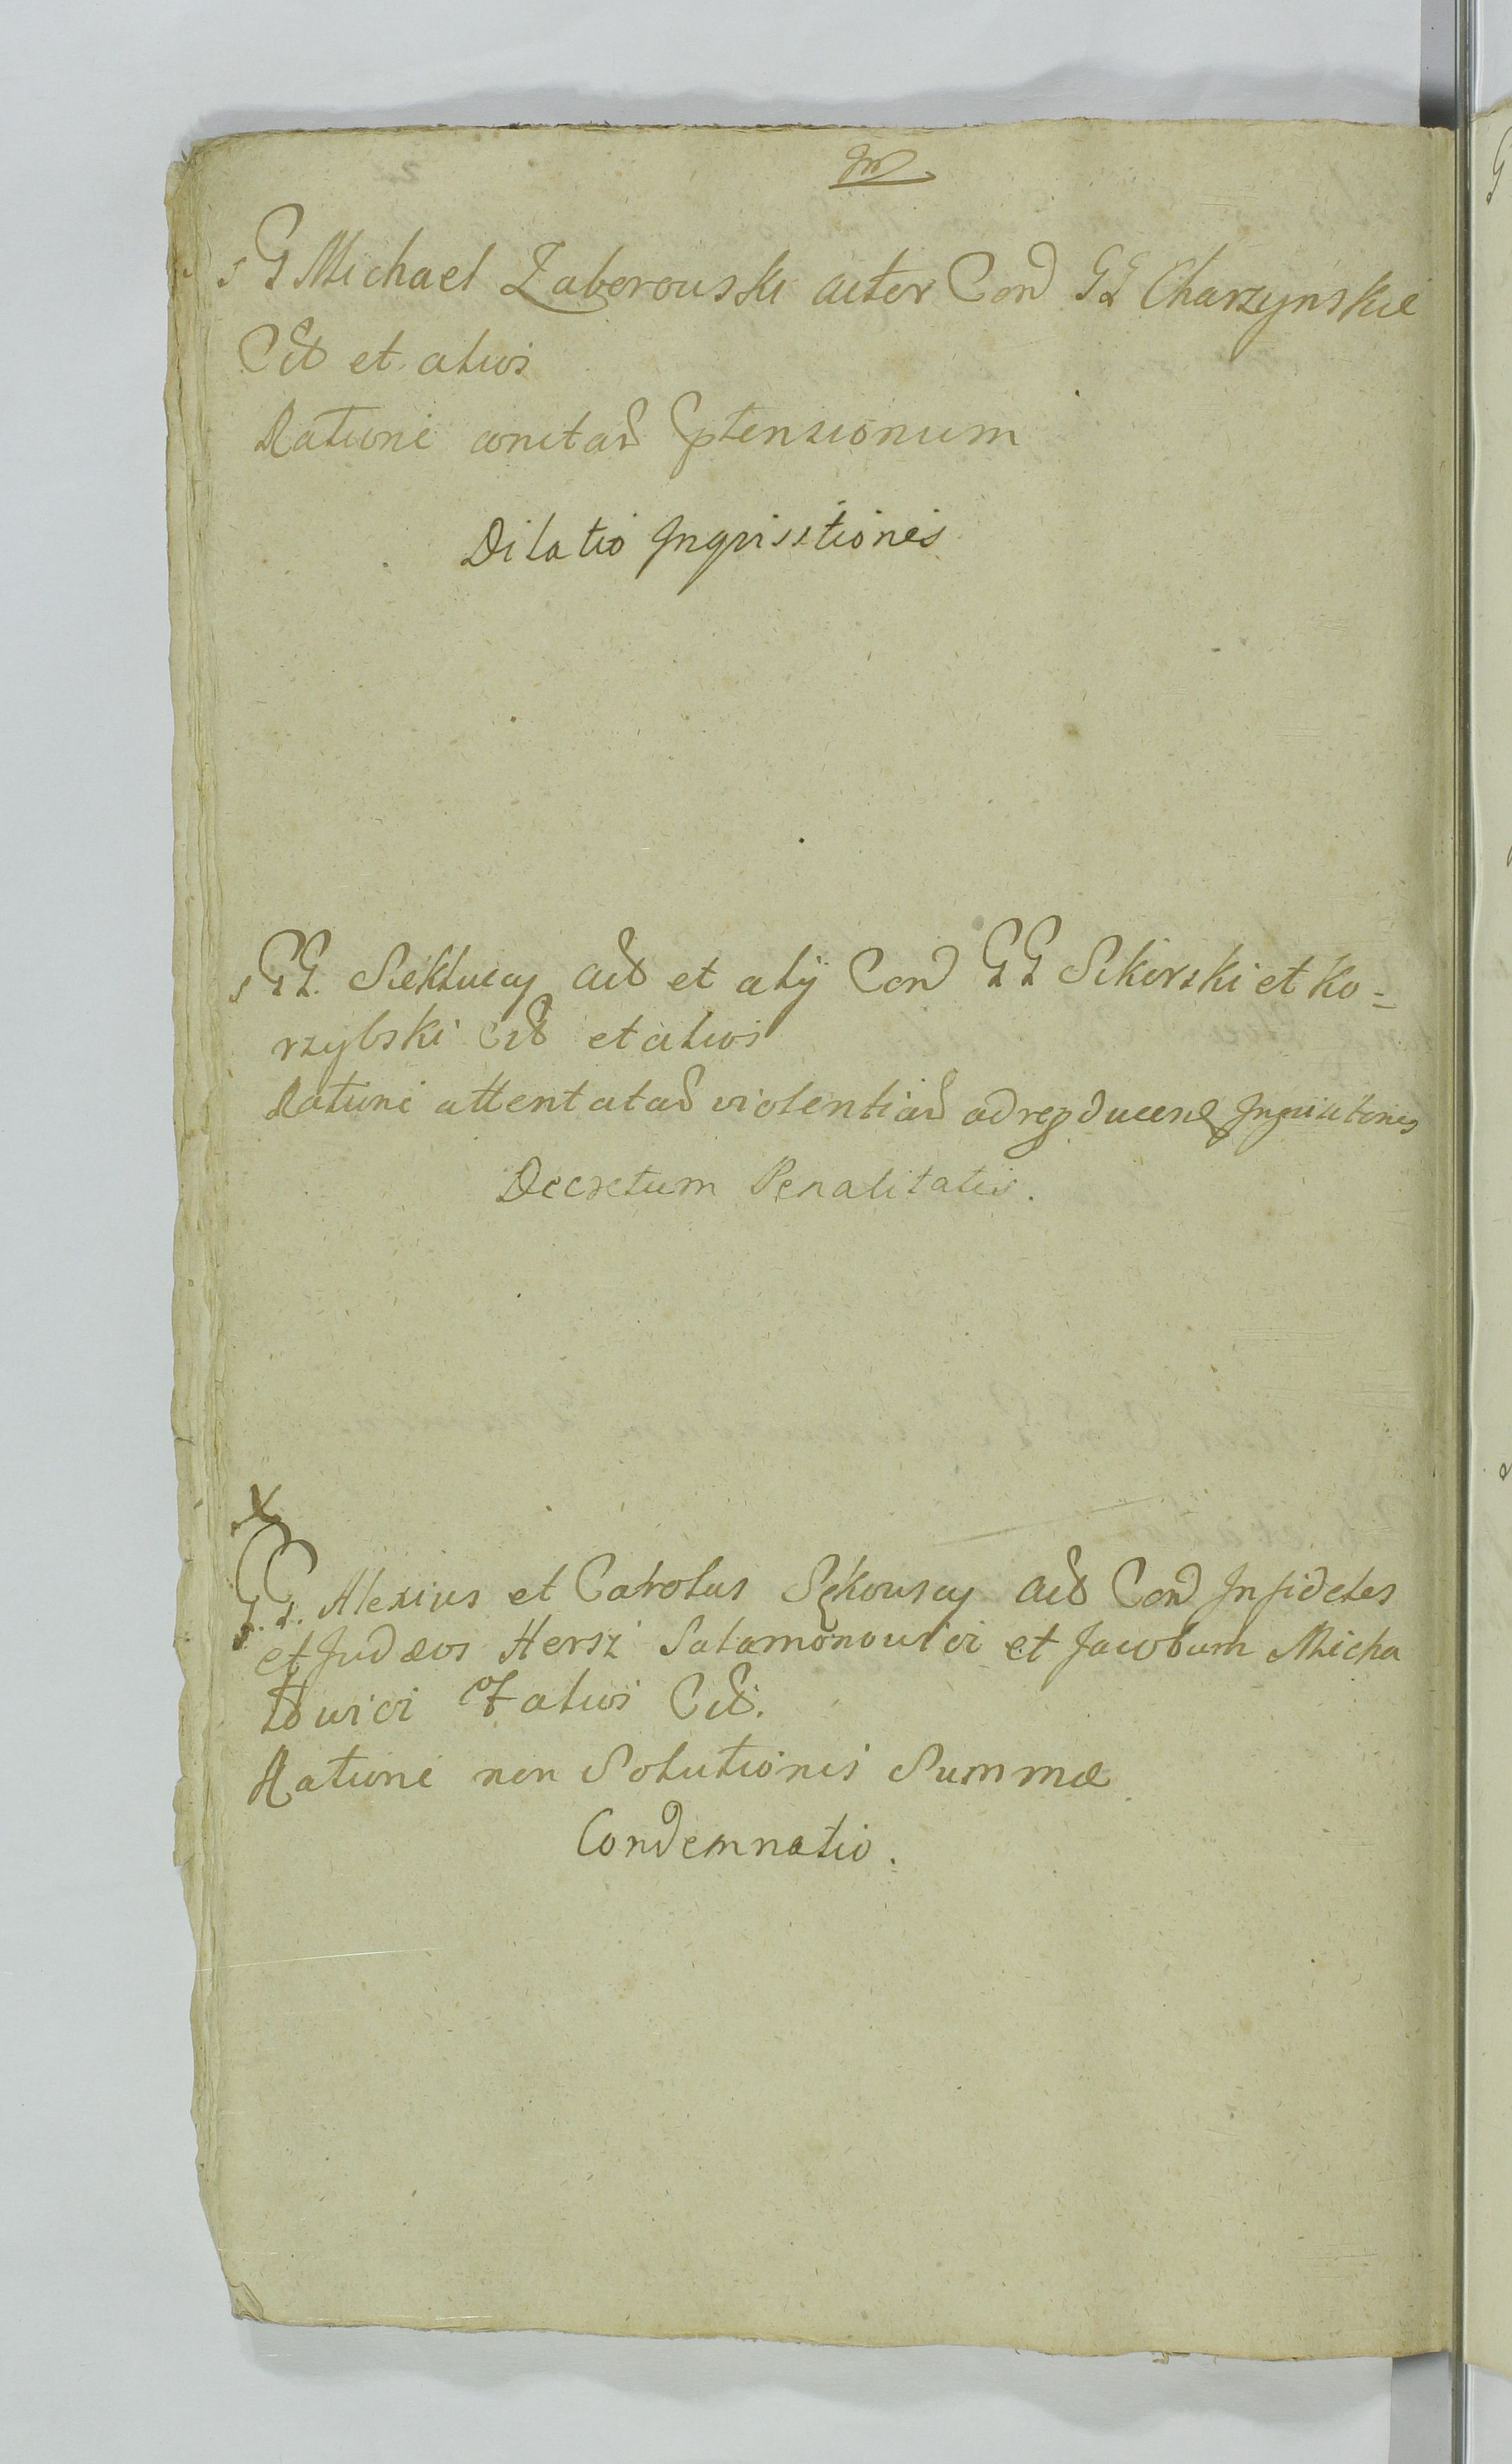 G Michael Zaborowski actor Con GG Charzynskie
Cit et alios
Ratione contar ptensionum
Dilatio Inquisitionis
GG. Siekluccy act et alij Con GG Sikorski et Ko=
rzybski Cit et alios
Ratione attentatar violentiar ad repducend Inquisitiones
Decretum Penalitatis.
X
GG. Alexius et Carolus Sękowscy act Con Infideles
et Judæos Herszi Salamonowici et Jacobum Micha
lowici et alios Cit.
Ratione non Solutionis Summæ
Condemnatio.